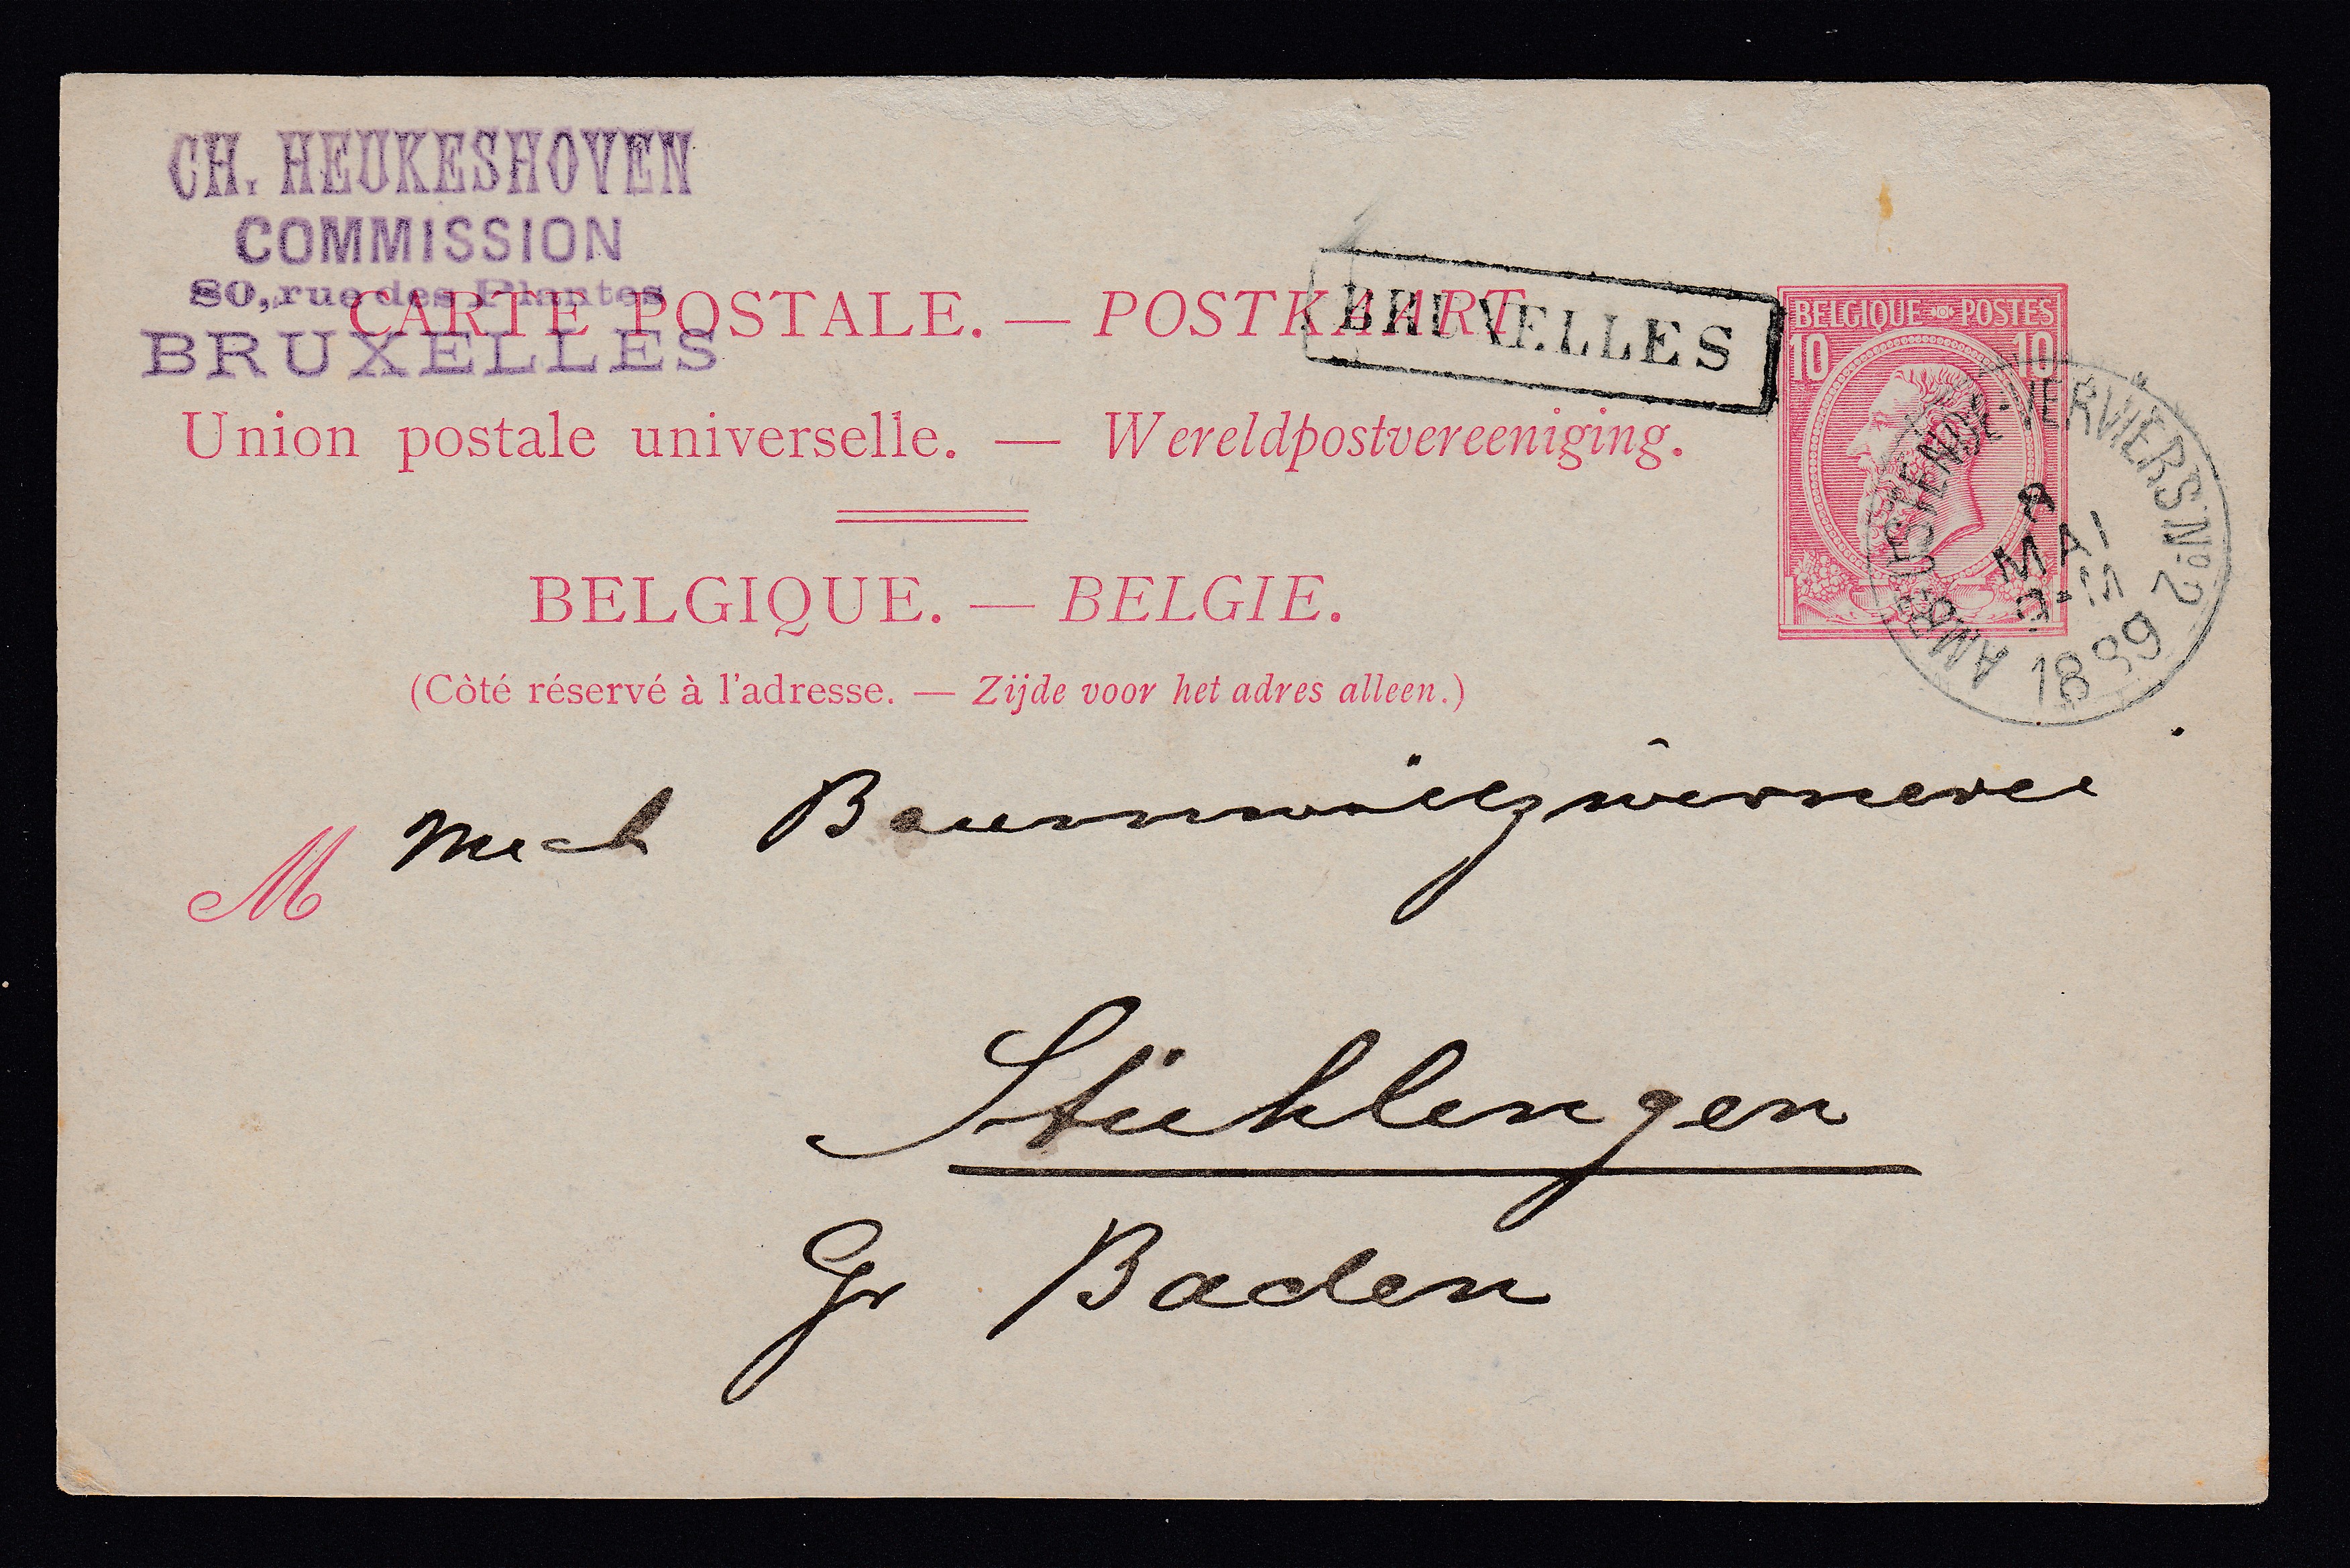 CH. HEUKESHOVEN
COMMISSION
80, rue des Plantes
BRUXELLES
CARTE POSTALE. — POSTKAART
BRUXELLES
Union postale universelle. — Wereldpostvereeniging.
BELGIQUE. — BELGIE.
(Côté réservé à l'adresse. — Zijde voor het adres alleen.)
BELGIQUE POSTES
10 10
AMB. OSTENDE-VERVIERS No 2
MAI
1889
M Mech Baumwollzwirnerei
Stühlingen
Gr Baden